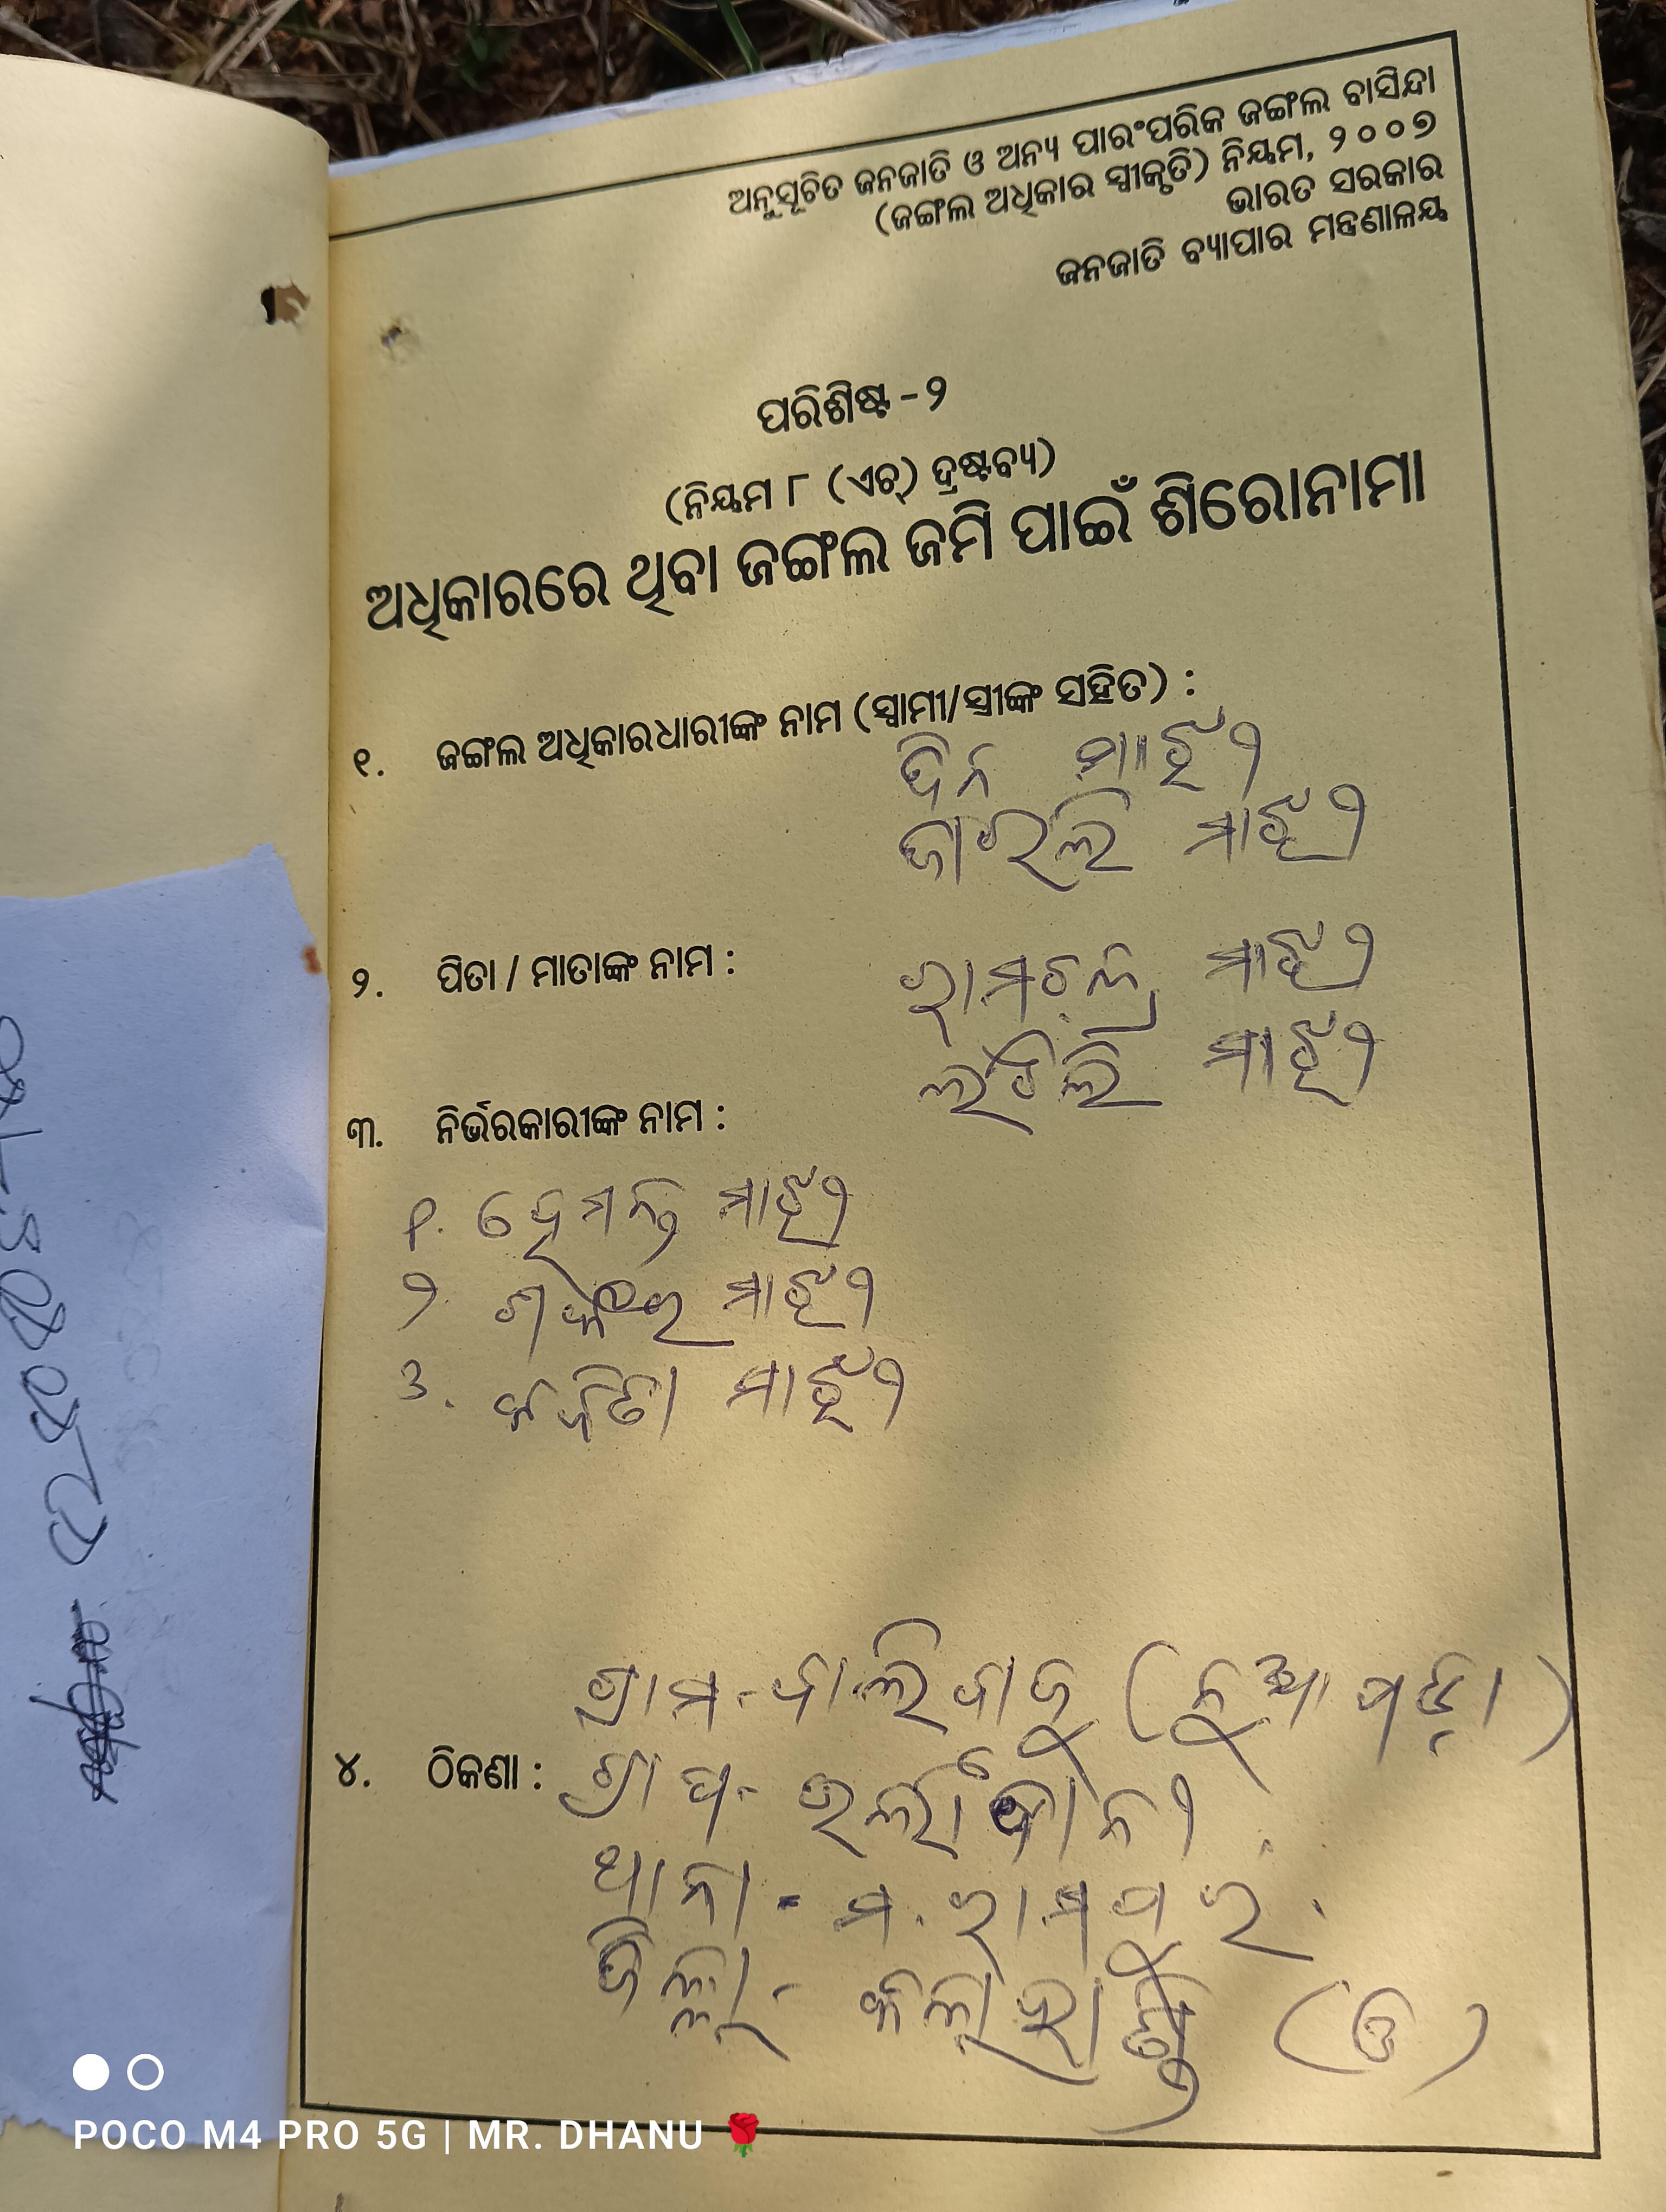 ଅନୁସୂଚିତ ଜନଜାତି ଓ ଅନ୍ୟ ପାରଂପରିକ ଜଙ୍ଗଲ ବାସିନ୍ଦା
(ଜଙ୍ଗଲ ଅଧିକାର ସ୍ୱୀକୃତି) ନିୟମ, ୨୦୦୭
ଭାରତ ସରକାର
ଜନଜାତି ବ୍ୟାପାର ମନ୍ତ୍ରଣାଳୟ
ପରିଶିଷ୍ଟ - ୨
(ନିୟମ ୮ (ଏଚ୍) ଦ୍ରଷ୍ଟବ୍ୟ)
ଅଧିକାରରେ ଥିବା ଜଙ୍ଗଲ ଜମି ପାଇଁ ଶିରୋନାମା
୧. ଜଙ୍ଗଲ ଅଧିକାରଧାରୀଙ୍କ ନାମ (ସ୍ୱାମୀ/ସ୍ତ୍ରୀଙ୍କ ସହିତ) :
ଦିନ ମାଝୀ
ମାଝୀ
୨. ପିତା / ମାତାଙ୍କ ନାମ :
ମାଝୀ
ମାଝୀ
୩. ନିର୍ଭରକାରୀଙ୍କ ନାମ :
୧. ହେମନ୍ତ ମାଝୀ
୨. ମାଝୀ
୩. କବିତା ମାଝୀ
ଗ୍ରାମ - (ନୁଆପଡ଼ା)
୪. ଠିକଣା : ଗ୍ରା ପ -
ଥାନା - ମ. ରାମପୁର
ଜିଲ୍ଲା - କଳାହାଣ୍ଡି (ଓ)
POCO M4 PRO 5G | MR. DHANU 🌹